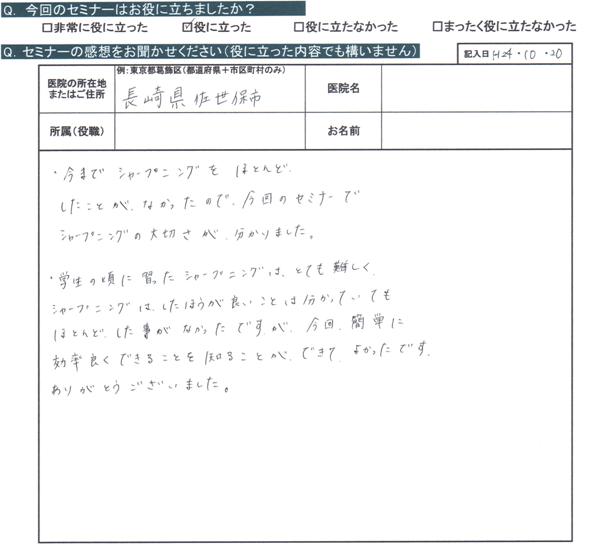 Q. 今回のセミナーはお役に立ちましたか？
□非常に役に立った ☑役に立った □役に立たなかった □まったく役に立たなかった
Q. セミナーの感想をお聞かせください(役に立った内容でも構いません)
記入日 H24・10・20
医院の所在地
またはご住所
例:東京都葛飾区(都道府県＋市区町村のみ)
長崎県佐世保市
医院名
所属(役職)
お名前
・今まで シャープニングを ほとんど、
したことが、なかったので、今回のセミナーで
シャープニングの大切さが、分かりました。
・学生の頃に習ったシャープニングは、とても難しく、
シャープニングは、したほうが良いことは分かっていても
ほとんど、した事がなかったですが、今回、簡単に
効率良くできることを知ることが、できて、よかったです。
ありがとうございました。